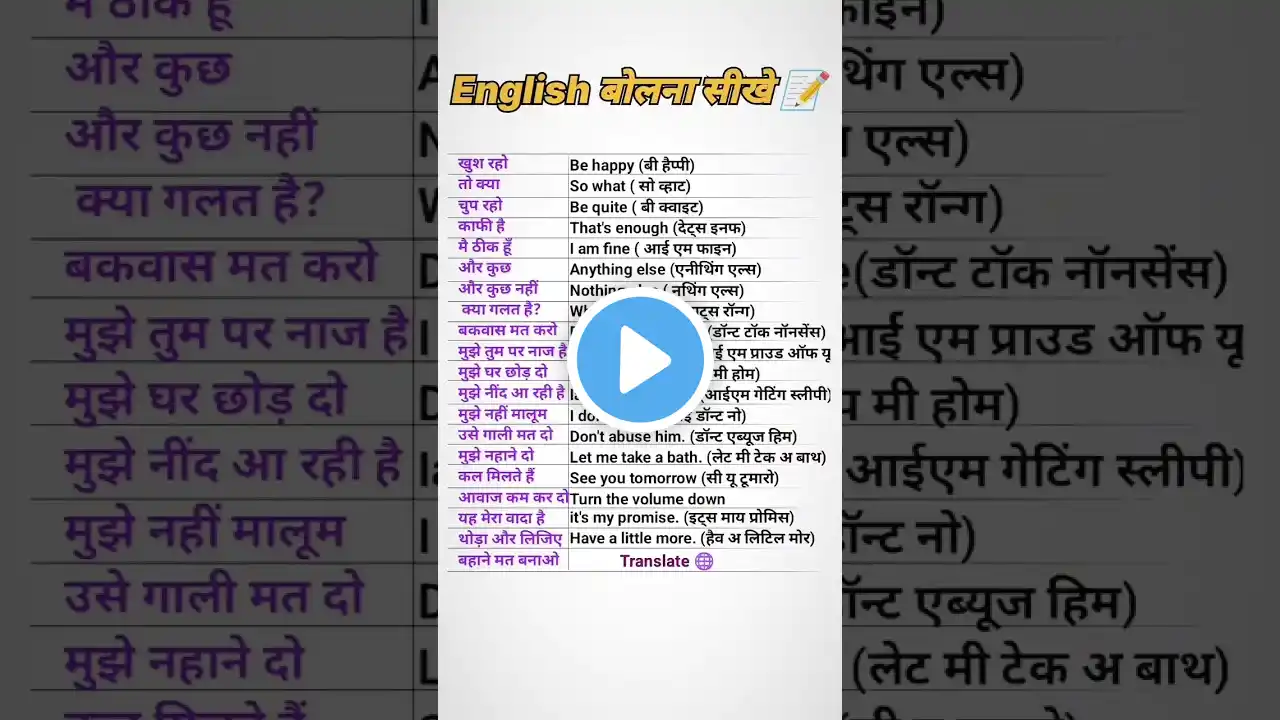 English बोलना सीखे
खुश रहो Be happy (बी हैप्पी)
तो क्या So what ( सो व्हाट)
चुप रहो Be quite ( बी क्वाइट)
काफी है That's enough (देट्स इनफ)
मै ठीक हूँ I am fine ( आई एम फाइन)
और कुछ Anything else (एनीथिंग एल्स)
और कुछ नहीं ( नथिंग एल्स)
क्या गलत है? रॉन्ग)
बकवास मत करो (डॉन्ट टॉक नॉनसेंस)
मुझे तुम पर नाज है एम प्राउड ऑफ यू
मुझे घर छोड़ दो मी होम)
मुझे नींद आ रही है (आईएम गेटिंग स्लीपी)
मुझे नहीं मालूम I डॉन्ट नो)
उसे गाली मत दो Don't abuse him. (डॉन्ट एब्यूज हिम)
मुझे नहाने दो Let me take a bath. (लेट मी टेक अ बाथ)
कल मिलते हैं See you tomorrow (सी यू टूमारो)
आवाज कम कर दो Turn the volume down
यह मेरा वादा है it's my promise. (इट्स माय प्रोमिस)
थोड़ा और लिजिए Have a little more. (हैव अ लिटिल मोर)
बहाने मत बनाओ Translate